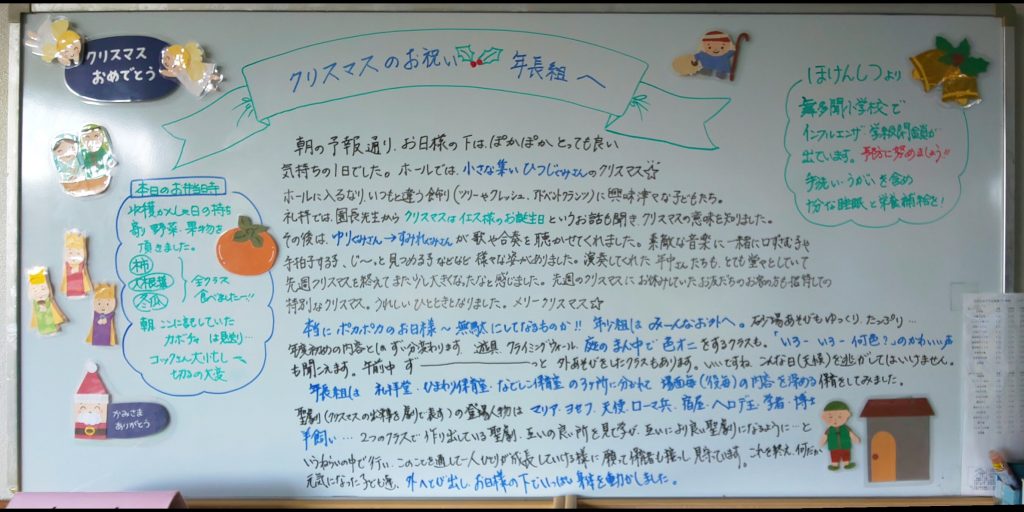 クリスマス
おめでとう
クリスマスのお祝い 年長組へ
ほけんしつより
舞多聞小学校で
インフルエンザ 学級閉鎖が
出ています。予防に努めましょう!!
手洗い・うがいを含め
十分な睡眠と栄養補給を!
本日のお弁当時
収穫かんしゃの日の持ち
寄り野菜・果物を
頂きました。
柿
大根葉
冬瓜
全クラス
食べましたー!!
朝、ここに記していた
カボチャは見送り…
コックさん大忙し→
切るの大変
かみさま
ありがとう
朝の予報通り、お日様の下は、ぽかぽか、とっても良い
気持ちの1日でした。ホールでは、小さな集い ひつじぐみさんのクリスマス☆
ホールに入るなり、いつもと違う飾り(ツリーやクレッシュ、アドベントクランツ)に興味津々な子どもたち。
礼拝では、園長先生から クリスマスはイエス様のお誕生日 というお話も聞き、クリスマスの意味を知りました。
その後は、ゆりぐみさん→すみれぐみさんが歌や合奏を聴かせてくれました。素敵な音楽に一緒に口ずさむ子や
手拍子する子、じ〜っと見つめる子などなど 様々な姿がありました。演奏してくれた年中さんたちも、とても堂々としていて
先週クリスマスを終えてまた少し大きくなったなと感じました。先週のクリスマスにお休みしていたお友だちのお客の方も招待しての
特別なクリスマス。うれしいひとときとなりました。メリークリスマス☆
本当に ポカポカのお日様〜無駄にしてなるものか!! 年少組は みーんなお外へ。砂場あそびもゆっくり、たっぷり…
年度初めの内容とは、ずい分変わります 遊具、クライミングウォール 庭のまん中で 色オニをするクラスも。“いろーいろー何色?”のかわいい声
も聞こえます。午前中 ずーっと 外あそびをしたクラスもあります。いいですね、こんな日(天候)を逃がしてはいけません。
年長組は 礼拝堂・ひまわり保育室・なでしこ保育室 の3ヶ所に分かれて 場面毎(役毎)の内容を深める保育をしてみました。
聖劇(クリスマスの出来事を劇で表す)の登場人物は マリア・ヨセフ・天使・ローマ兵・宿屋・ヘロデ王・学者・博士
羊飼い… 2つのクラスで作り出している聖劇。互いの良い所を見て学び、互いにより良い聖劇になるように…と
いうねらいの中で行い、このことを通して一人ひとりが成長していける様に願って保育者も接し、見守っています。これを終え、何だか
元気になった子ども達、外へとび出し、お日様の下でいっぱい身体を動かしました。